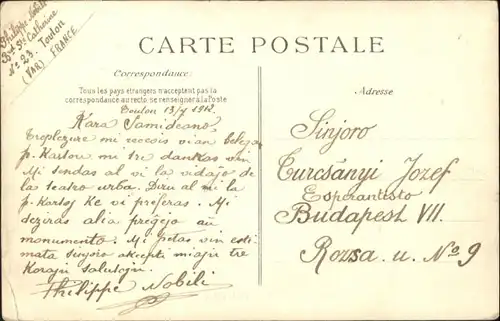 Philippe Nobili
Bd Ste Catherine
No 23. Toulon
(VAR) FRANCE
CARTE POSTALE
Correspondance
Tous les pays étrangers n'acceptent pas la
correspondance au recto, se renseigner à la Poste
Adresse
Toulon 13/7 1912
Kara Samideano,
Treplezure mi recevis vian belega
p. Karton mi tre dankas vin
Mi sendas al vi la vidajo de
la teatro urba. Diru al mi la
p. Kartoj ke vi preferas. Mi
deziras alia preĝejo aŭ
monumento. Mi petas vin esti-
mata sinjoro akceptu miajn tre
Korajn salutojn.
Philippe Nobili
Sinjoro
Turcsányi Jozef
Esperantisto
Budapest VII.
Rozsa. u. No 9